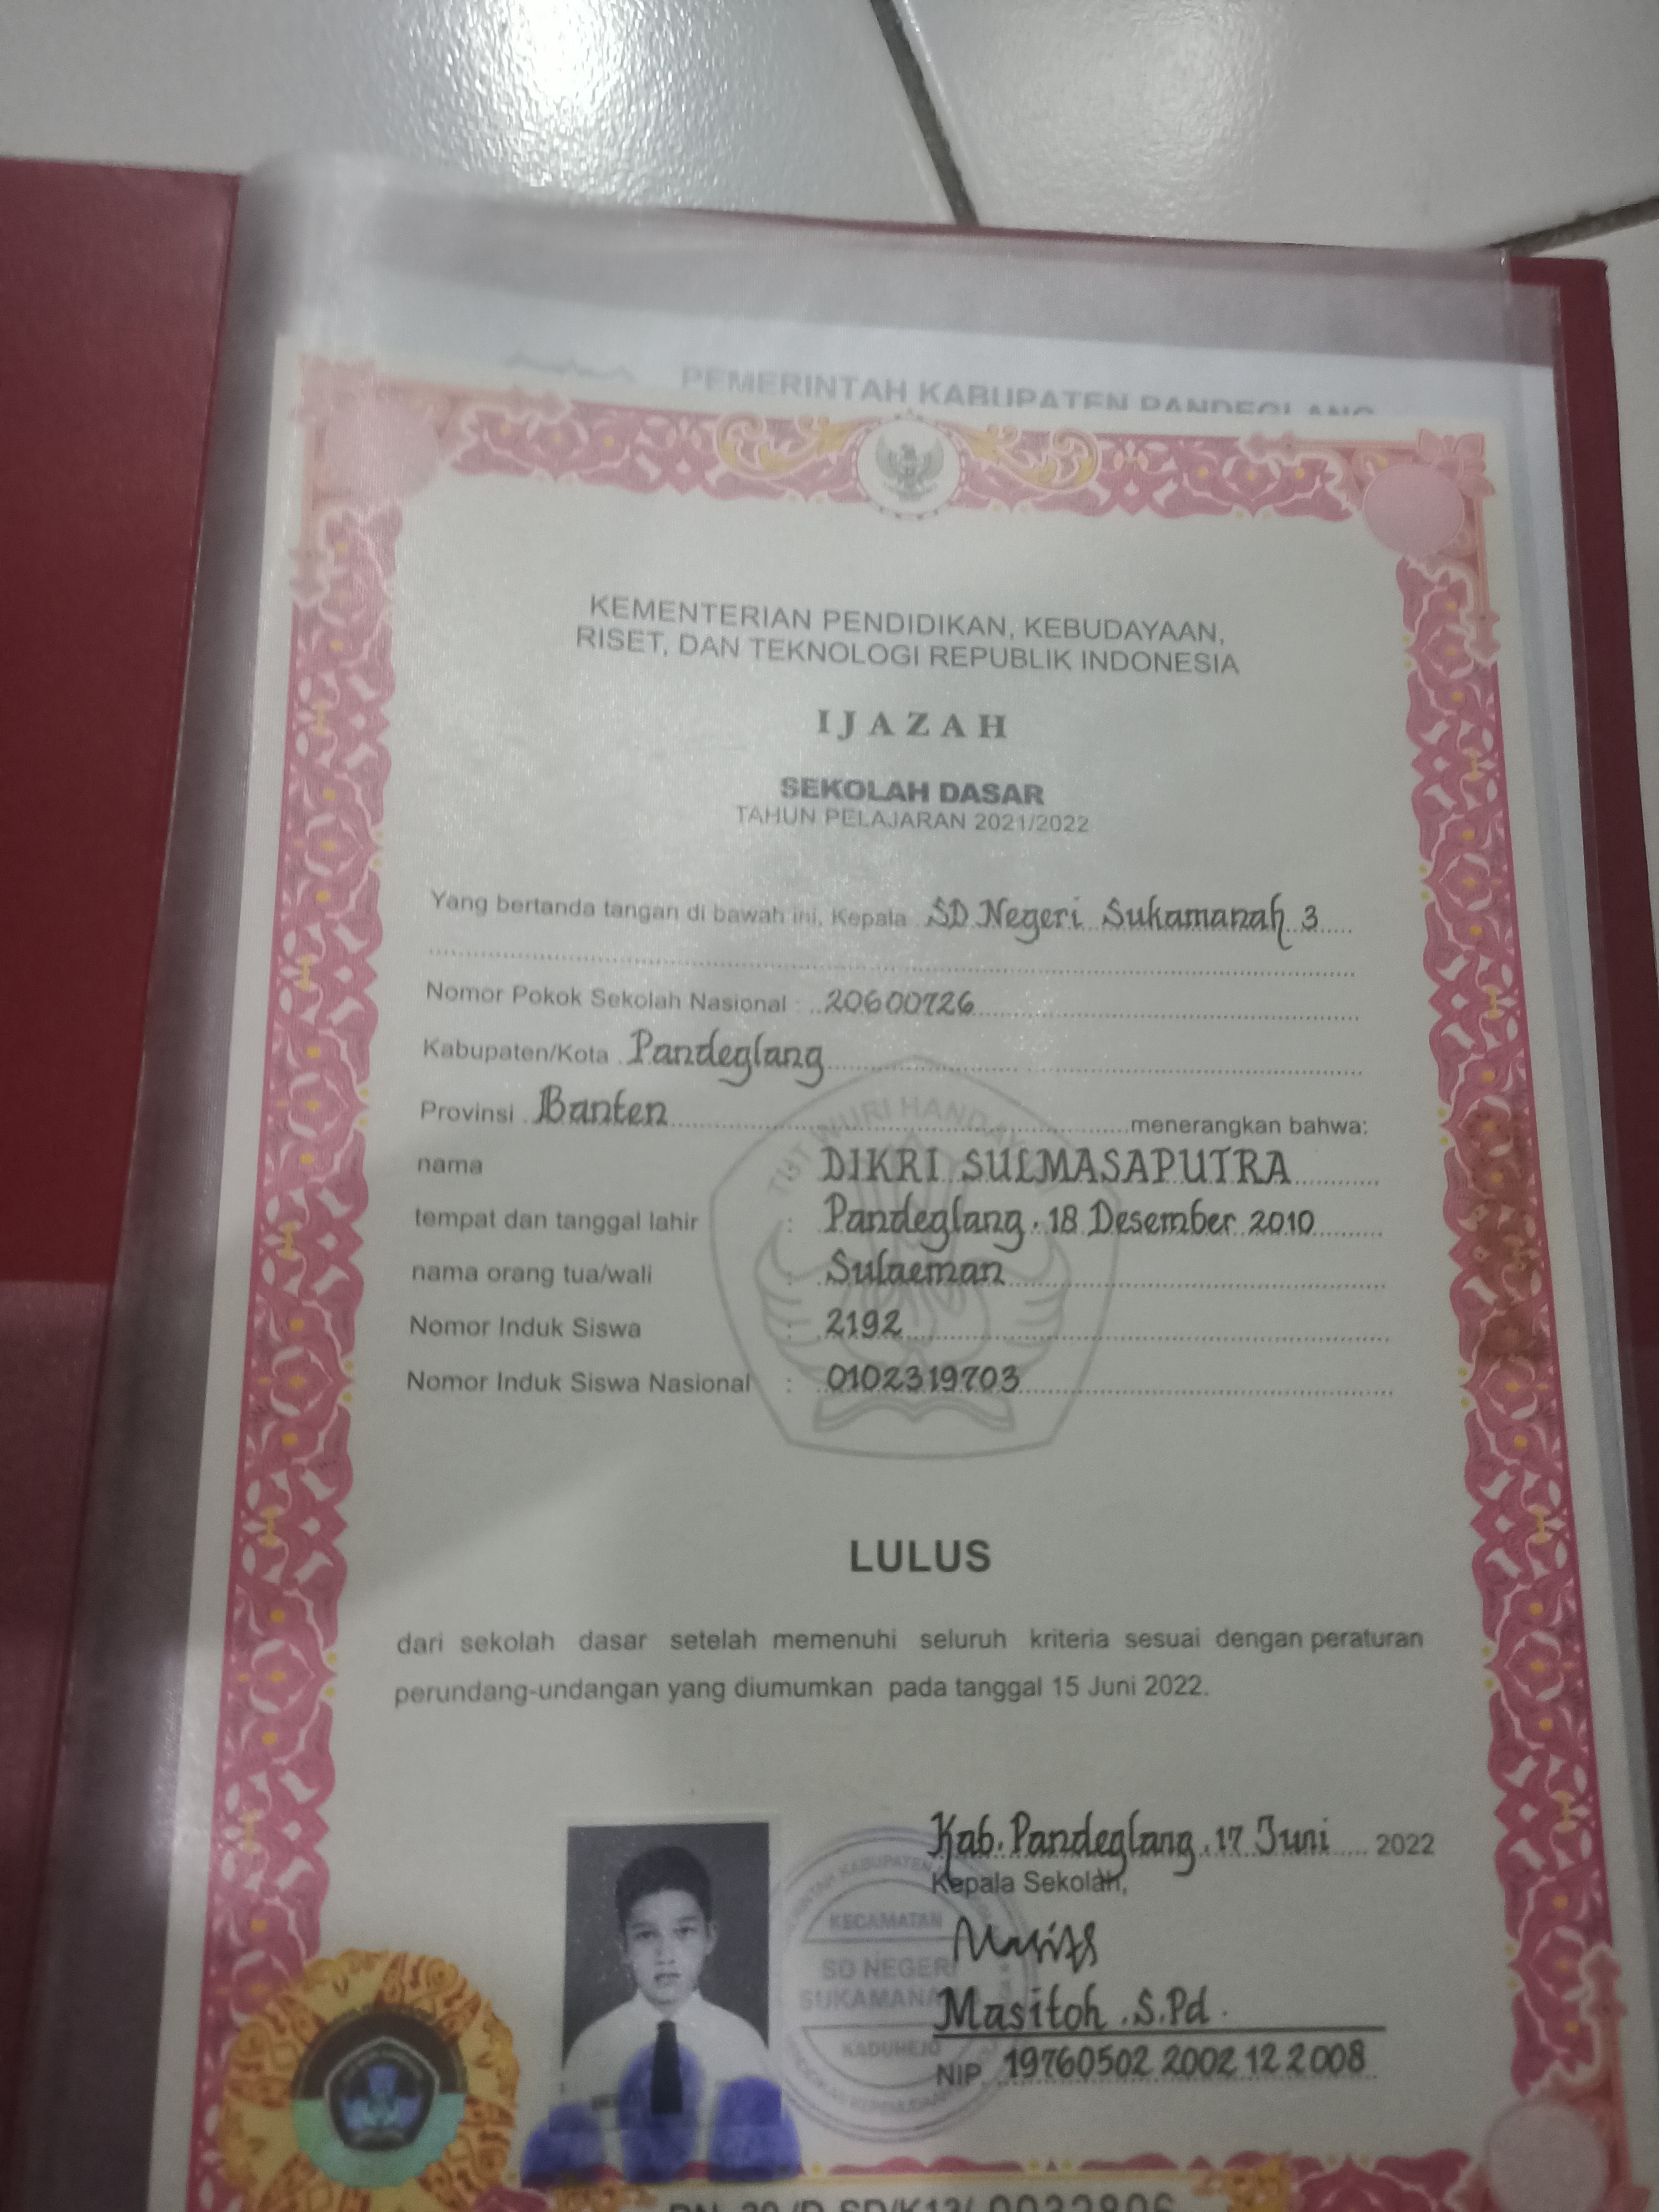 PEMERINTAH KABUPATEN PANDEGLANG
KEMENTERIAN PENDIDIKAN, KEBUDAYAAN,
RISET, DAN TEKNOLOGI REPUBLIK INDONESIA
IJAZAH
SEKOLAH DASAR
TAHUN PELAJARAN 2021/2022
Yang bertanda tangan di bawah ini, Kepala SD Negeri Sukamanah 3
Nomor Pokok Sekolah Nasional : 20600726
Kabupaten/Kota Pandeglang
Provinsi Banten menerangkan bahwa:
TUT WURI HANDAYANI
nama DIKRI SULMASAPUTRA
tempat dan tanggal lahir : Pandeglang, 18 Desember 2010
nama orang tua/wali : Sulaeman
Nomor Induk Siswa : 2192
Nomor Induk Siswa Nasional : 0102319703
LULUS
dari sekolah dasar setelah memenuhi seluruh kriteria sesuai dengan peraturan
perundang-undangan yang diumumkan pada tanggal 15 Juni 2022.
Kab. Pandeglang, 17 Juni 2022
Kepala Sekolah,
KECAMATAN
SD NEGERI
SUKAMANAH
KADUHEJO
Masitoh, S.Pd.
NIP. 19760502 2002 12 2 008